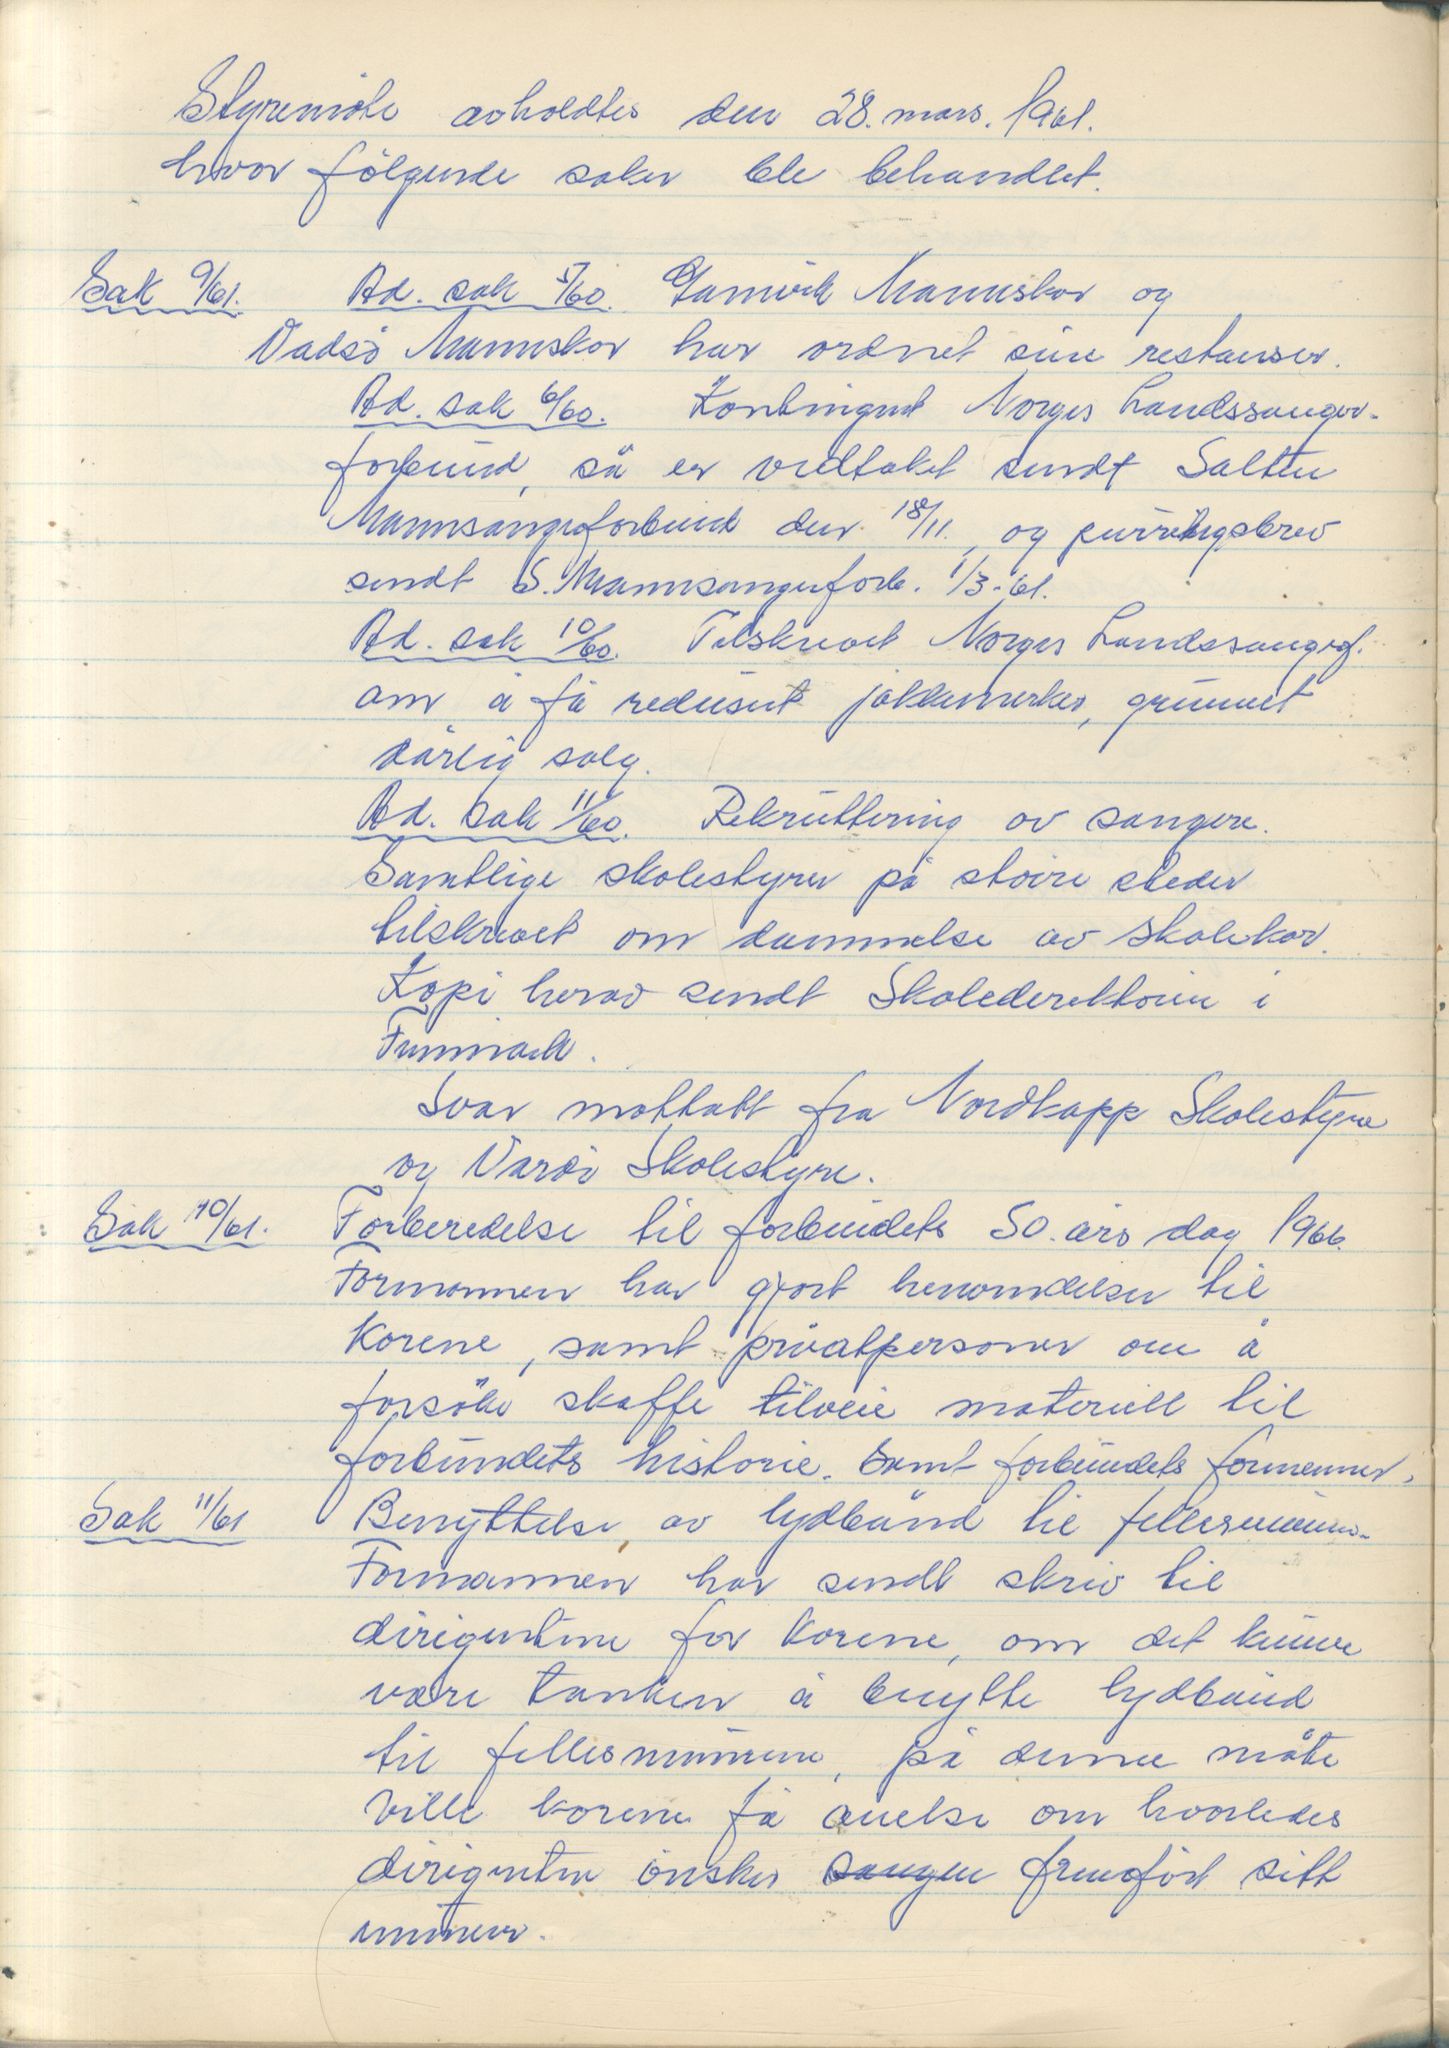 Styremöte avholdtes den 28. mars. 1961.
hvor fölgende saker ble behandlet.
Sak 9/61. Ad. sak 5/60. Gamvik Mannskor og
Vadsö Mannskor har ordnet sine restanser.
Ad. sak 6/60. Kontingent Norges Landssanger-
forbund, så er vedtaket sendt Salten
Mannsangerforbund den 18/11., og purringsbrev
sendt S. Mannsangerforb. 1/3-61.
Ad. sak 10/60. Tilskrevet Norges Landssangerf.
om å få redusert jakkemerker, grunnet
dårlig salg.
Ad. sak 11/60. Rekruttering av sangere.
Samtlige skolestyrer på större steder
tilskrevet om dannelse av skolekor.
Kopi herav sendt Skoledirektören i
Finnmark.
Svar mottatt fra Nordkapp Skolestyre
og Vardö Skolestyre.
Sak 10/61. Forberedelse til forbundets 50. års dag 1966.
Formannen har gjort henvendelser til
korene, samt privatpersoner om å
forsöke skaffe tilveie materiell til
forbundets historie. Samt forbundets formenner.
Sak 11/61 Benyttelse av lydbånd til fellesnumre.
Formannen har sendt skriv til
dirigentene for korene, om det kunne
være tanken å benytte lydbånd
til fellesnumrene, på denne måte
ville korene få anelse om hvorledes
dirigenten önsker sangen fremfört sitt
nummer.